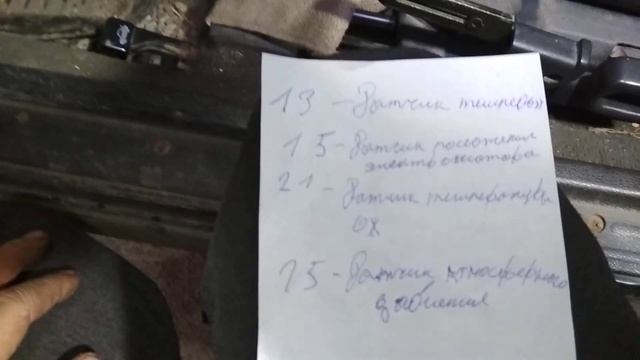 13 - Датчик температ
15 - Датчик положения
электромотора
21 - Датчик температуры
ОЖ
15 - Датчик атмосферного
давления